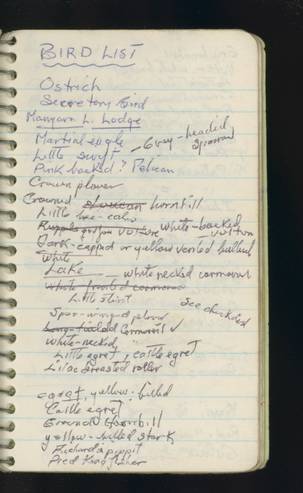 BIRD LIST
Ostrich
Secretary Bird
Manyara L. Lodge
Martial eagle
Little swift - Grey-headed sparrow
Pink backed? Pelican
Crown plover
Crowned hornbill
Little bee-eater
vulture White-backed vulture
Dark-capped or yellow vented bulbul
White
Lake white necked cormorant
White fronted cormorant
Little stint
See checklist
Spur-winged plover
Long-tailed Cormorant ✓
White-necked,
Little egret, cattle egret
Lilac breasted roller
egret, yellow-billed
Cattle egret
Ground Hornbill
yellow-billed stork
Richard's pippit
Pied Kingfisher